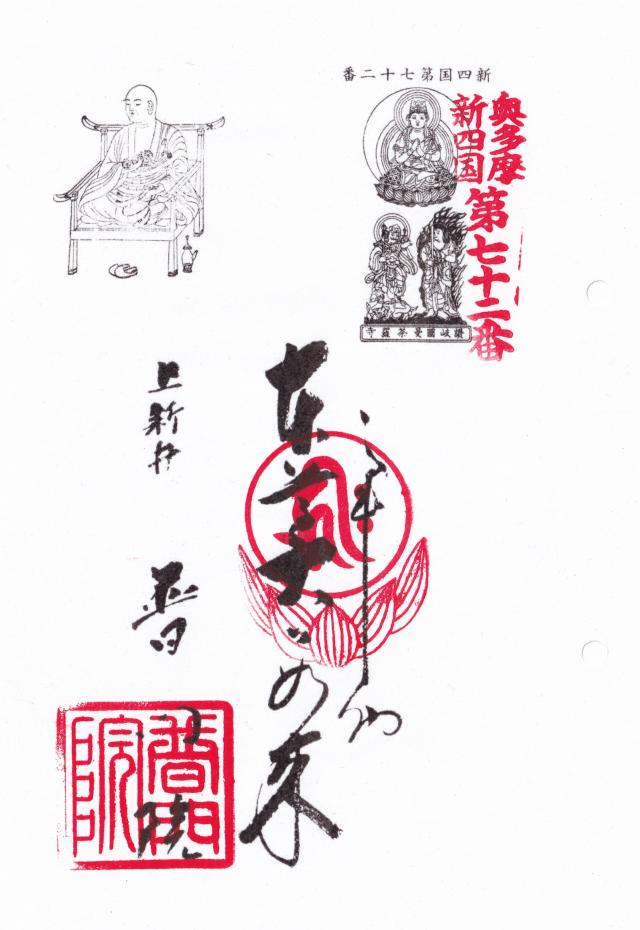 新四国第七十二番
奥多摩
新四国
第七十二番
讃岐國曼荼羅寺
本尊大日如来
上新井
普門院
普門院